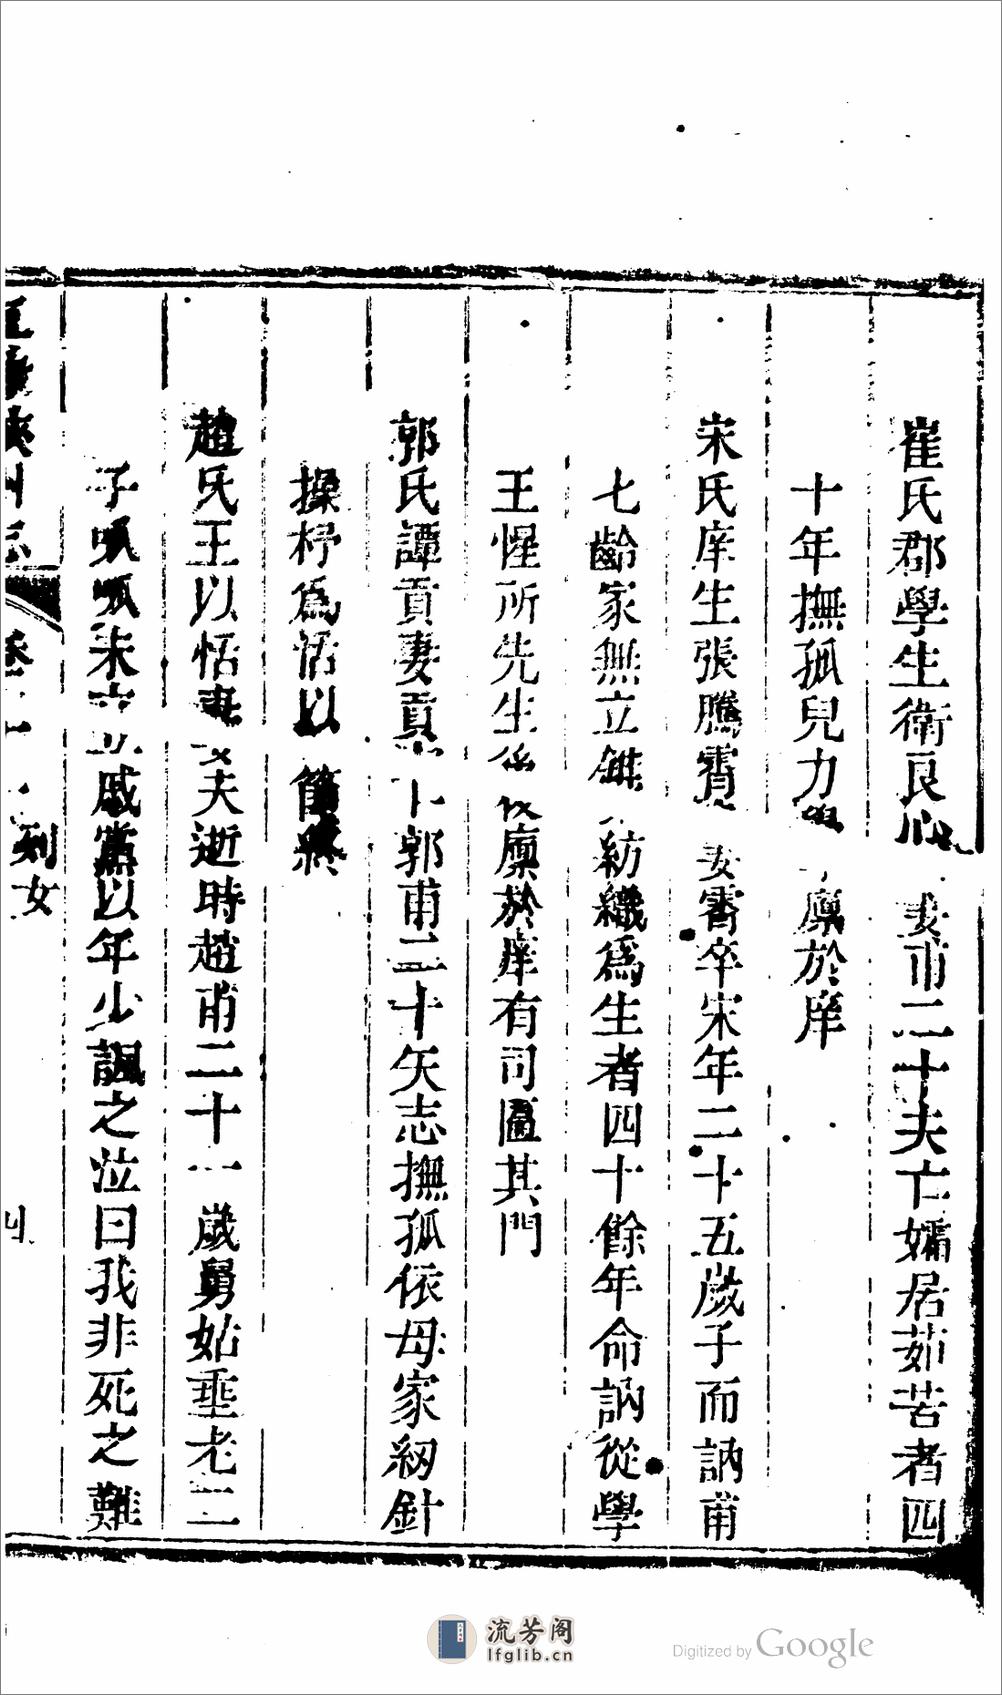 崔氏郡學生衛良 妻甫二十夫亡孀居茹苦者四
十年撫孤兒力 廩於庠
宋氏庠生張騰霄 妻霄卒宋年二十五歲子而訥甫
七齡家無立 紡織爲生者四十餘年命訥從學
王惺所先生 廩於庠有司匾其門
郭氏譚貢妻貢 卜郭甫二十矢志撫孤依母家紉針
操杼爲活以 節終
趙氏王以恬妻 夫逝時趙甫二十一歲舅姑垂老二
子呱呱未 立戚黨以年少諷之泣曰我非死之難
州志 卷 列女 四
流芳阁
lfglib.cn
Digitized by Google